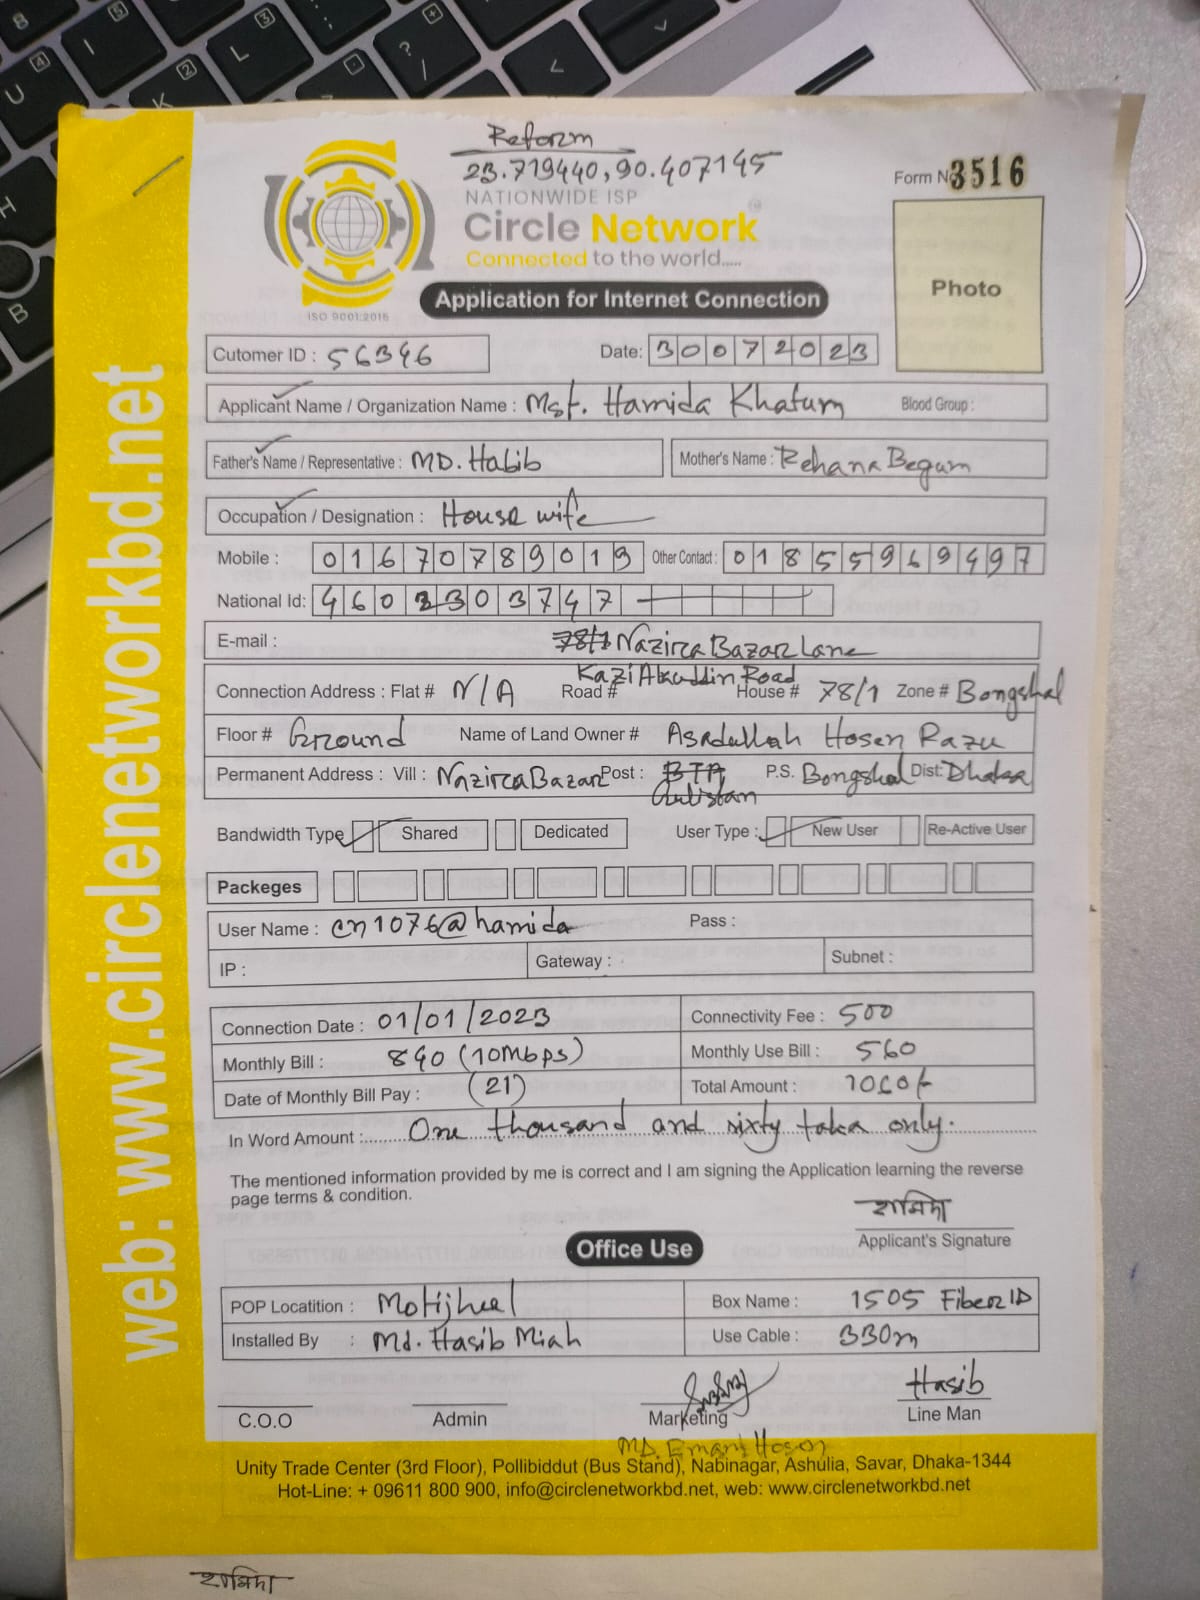 Reform
23.719440, 90.407145
Form No 3516
NATIONWIDE ISP
Circle Network
Connected to the world.....
ISO 9001:2015
Application for Internet Connection
Photo
Cutomer ID : 56346
Date: 30072023
Applicant Name / Organization Name : Mst. Hamida Khatum Blood Group :
Father's Name / Representative : MD. Habib Mother's Name : Rehana Begum
Occupation / Designation : House wife
Mobile : 01670789013 Other Contact : 01855969497
National Id: 4602303747
E-mail :
78/1 Nazira Bazar Lane
Connection Address : Flat # N/A Road # Kazi Alauddin Road House # 78/1 Zone # Bongshal
Floor # Ground Name of Land Owner # Asadullah Hosen Razu
Permanent Address : Vill : Nazira Bazar Post : Gulistan P.S. Bongshal Dist: Dhaka
Bandwidth Type Shared Dedicated User Type : New User Re-Active User
Packeges
User Name : cn1076@hamida Pass :
IP : Gateway : Subnet :
Connection Date : 01/01/2023 Connectivity Fee : 500
Monthly Bill : 840 (10Mbps) Monthly Use Bill : 560
Date of Monthly Bill Pay : (21) Total Amount : 1060/-
In Word Amount : One thousand and sixty taka only.
The mentioned information provided by me is correct and I am signing the Application learning the reverse
page terms & condition.
হামিদা
Applicant's Signature
Office Use
POP Locatition : Motijheel Box Name : 1505 Fiber ID
Installed By : Md. Hasib Miah Use Cable : 330m
Hasib
C.O.O Admin Marketing Line Man
MD. Emam Hosen
Unity Trade Center (3rd Floor), Pollibiddut (Bus Stand), Nabinagar, Ashulia, Savar, Dhaka-1344
Hot-Line: + 09611 800 900, info@circlenetworkbd.net, web: www.circlenetworkbd.net
হামিদা
web: www.circlenetworkbd.net